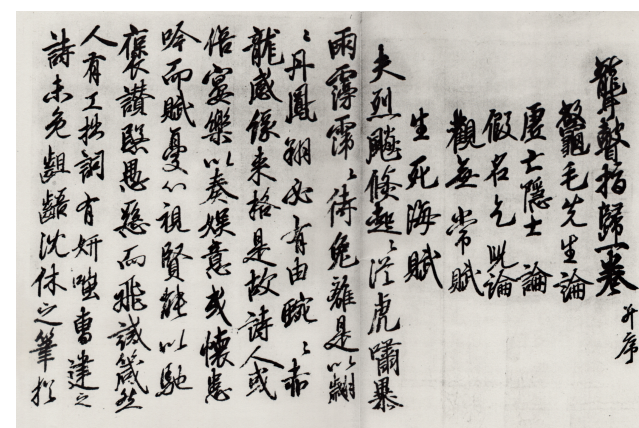 聾瞽指歸一卷 并序
鼇毛先生論
虛亡隱士論
假名乞兒論
觀無常賦
生死海賦
夫烈飈倏起〻從虎嘯暴
雨霶霈〻待兔離是以翩
〻丹鳳翔必有由蜿〻赤
龍感緣来格是故詩人或
倍宴樂以奏娯意或懷患
吟而賦憂心視賢能以馳
褒讃臨愚惡而飛誡箴然
人有工拙詞有妍嗤曹建之
詩未免齟齬沈休之筆猶